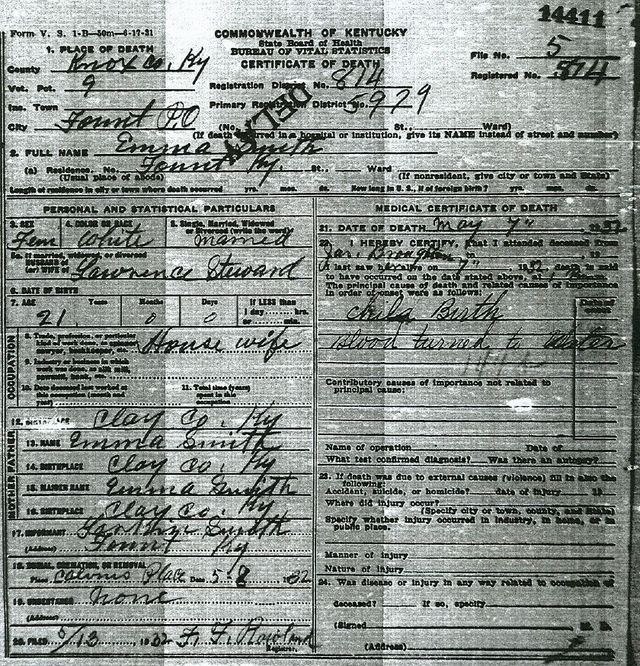 14411
Form V. S. 1-B—50m—6-17-31
COMMONWEALTH OF KENTUCKY
State Board of Health
BUREAU OF VITAL STATISTICS
CERTIFICATE OF DEATH
File No. 5
Registered No. 814
1. PLACE OF DEATH
County Knox Co, Ky
Vot. Pct. 9
Registration District No. 814
Inc. Town
Primary Registration District No. 5979
City Fount P.O (No. St., Ward)
(If death occurred in a hospital or institution, give its NAME instead of street and number)
DELAY
2. FULL NAME Emma Smith
(a) Residence. No. Fount Ky. St., Ward
(Usual place of abode) (If nonresident, give city or town and State)
Length of residence in city or town where death occurred yrs. mos. ds. How long in U. S., if of foreign birth? yrs. mos. ds.
PERSONAL AND STATISTICAL PARTICULARS
3. SEX 4. COLOR OR RACE 5. Single, Married, Widowed
Divorced (write the word)
Fem White Married
5a. If married, widowed, or divorced
(or) WIFE of Lawrence Steward
6. DATE OF BIRTH
7. AGE Years Months Days If LESS than
1 day hrs.
or min.
21 0 0
OCCUPATION
House wife
11. Total time (years)
spent in this
occupation
12. BIRTHPLACE Clay Co, Ky
MOTHER FATHER
13. NAME Emma Smith
14. BIRTHPLACE Clay Co, Ky
15. MAIDEN NAME Emma Smith
16. BIRTHPLACE Clay Co, Ky
17. INFORMANT Smith
(Address) Fount Ky
18. BURIAL, CREMATION, OR REMOVAL
Place Calvins Place Date 5-8 32
19. UNDERTAKER None
(Address)
20. FILED 5/13 1932 F. F. Rowland
Registrar.
MEDICAL CERTIFICATE OF DEATH
21. DATE OF DEATH May 7" 1932
22. I HEREBY CERTIFY, that I attended deceased from
Jas. Broughton
I last saw alive on 7" 1932, death is said
to have occurred on the date stated above, at m.
The principal cause of death and related causes of importance
in order of onset were as follows:
Date of
onset
Child Birth
Blood turned to Water
Contributory causes of importance not related to
principal cause:
Name of operation Date of
What test confirmed diagnosis? Was there an autopsy?
23. If death was due to external causes (violence) fill in also the
following:
Accident, suicide, or homicide? date of injury 19
Where did injury occur?
(Specify city or town, county, and State)
Specify whether injury occurred in industry, in home, or in
public place.
Manner of injury
Nature of injury
24. Was disease or injury in any way related to occupation of
deceased? If so, specify
(Signed
(Address)